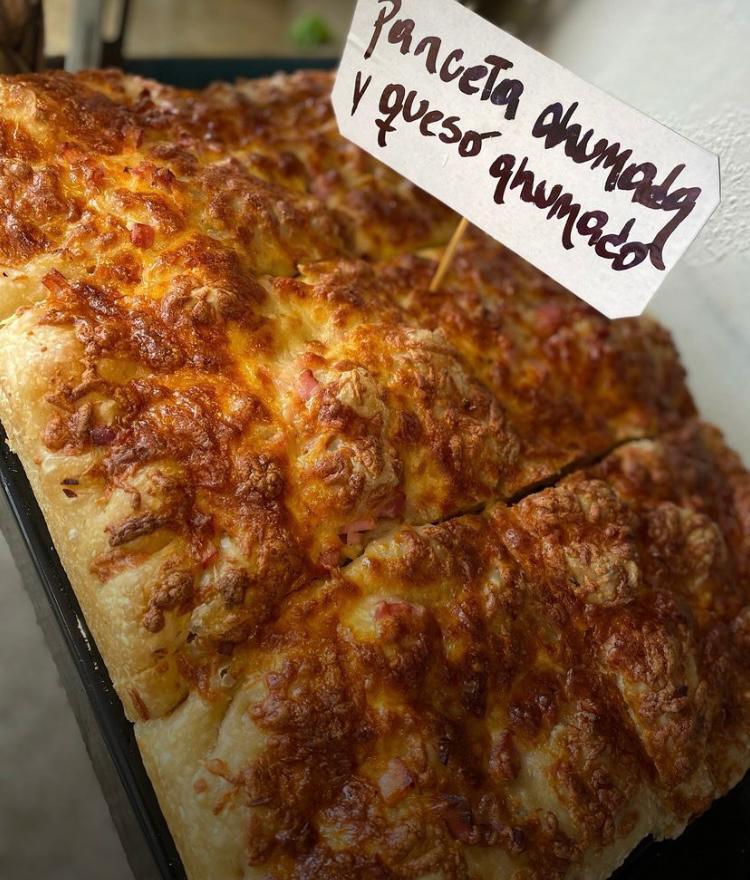 Panceta ahumada
y queso ahumado